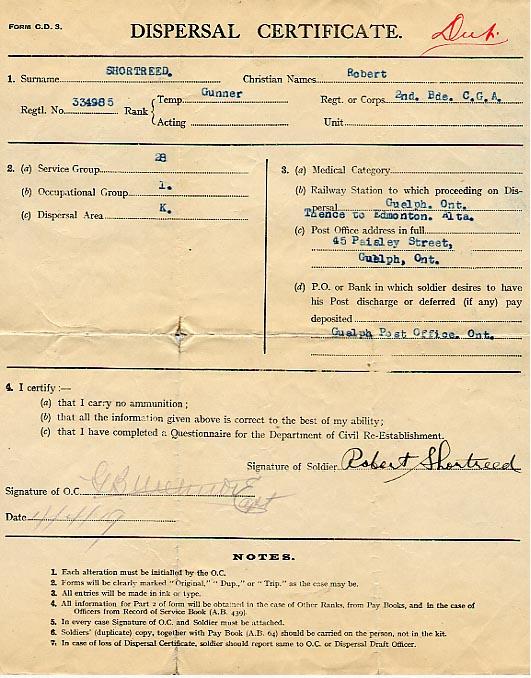 FORM C.D. 3.
DISPERSAL CERTIFICATE.
Dup.
1. Surname SHORTREED. Christian Names Robert
Regtl. No. 334985 Rank { Temp. Gunner Regt. or Corps. 2nd. Bde. C.G.A.
Acting Unit
2. (a) Service Group 28
(b) Occupational Group 1.
(c) Dispersal Area K.
3. (a) Medical Category
(b) Railway Station to which proceeding on Dis-
persal Guelph. Ont.
Thence to Edmonton. Alta.
(c) Post Office address in full
45 Paisley Street,
Guelph, Ont.
(d) P.O. or Bank in which soldier desires to have
his Post discharge or deferred (if any) pay
deposited
Guelph Post Office. Ont.
4. I certify :—
(a) that I carry no ammunition ;
(b) that all the information given above is correct to the best of my ability ;
(c) that I have completed a Questionnaire for the Department of Civil Re-Establishment.
Signature of Soldier Robert Shortreed
Signature of O.C. Capt
Date 4/4/19
NOTES.
1. Each alteration must be initialled by the O.C.
2. Forms will be clearly marked "Original," "Dup.," or "Trip." as the case may be.
3. All entries will be made in ink or type.
4. All information for Part 2 of form will be obtained in the case of Other Ranks, from Pay Books, and in the case of
Officers from Record of Service Book (A.B. 439).
5. In every case Signature of O.C. and Soldier must be attached.
6. Soldiers' (duplicate) copy, together with Pay Book (A.B. 64) should be carried on the person, not in the kit.
7. In case of loss of Dispersal Certificate, soldier should report same to O.C. or Dispersal Draft Officer.